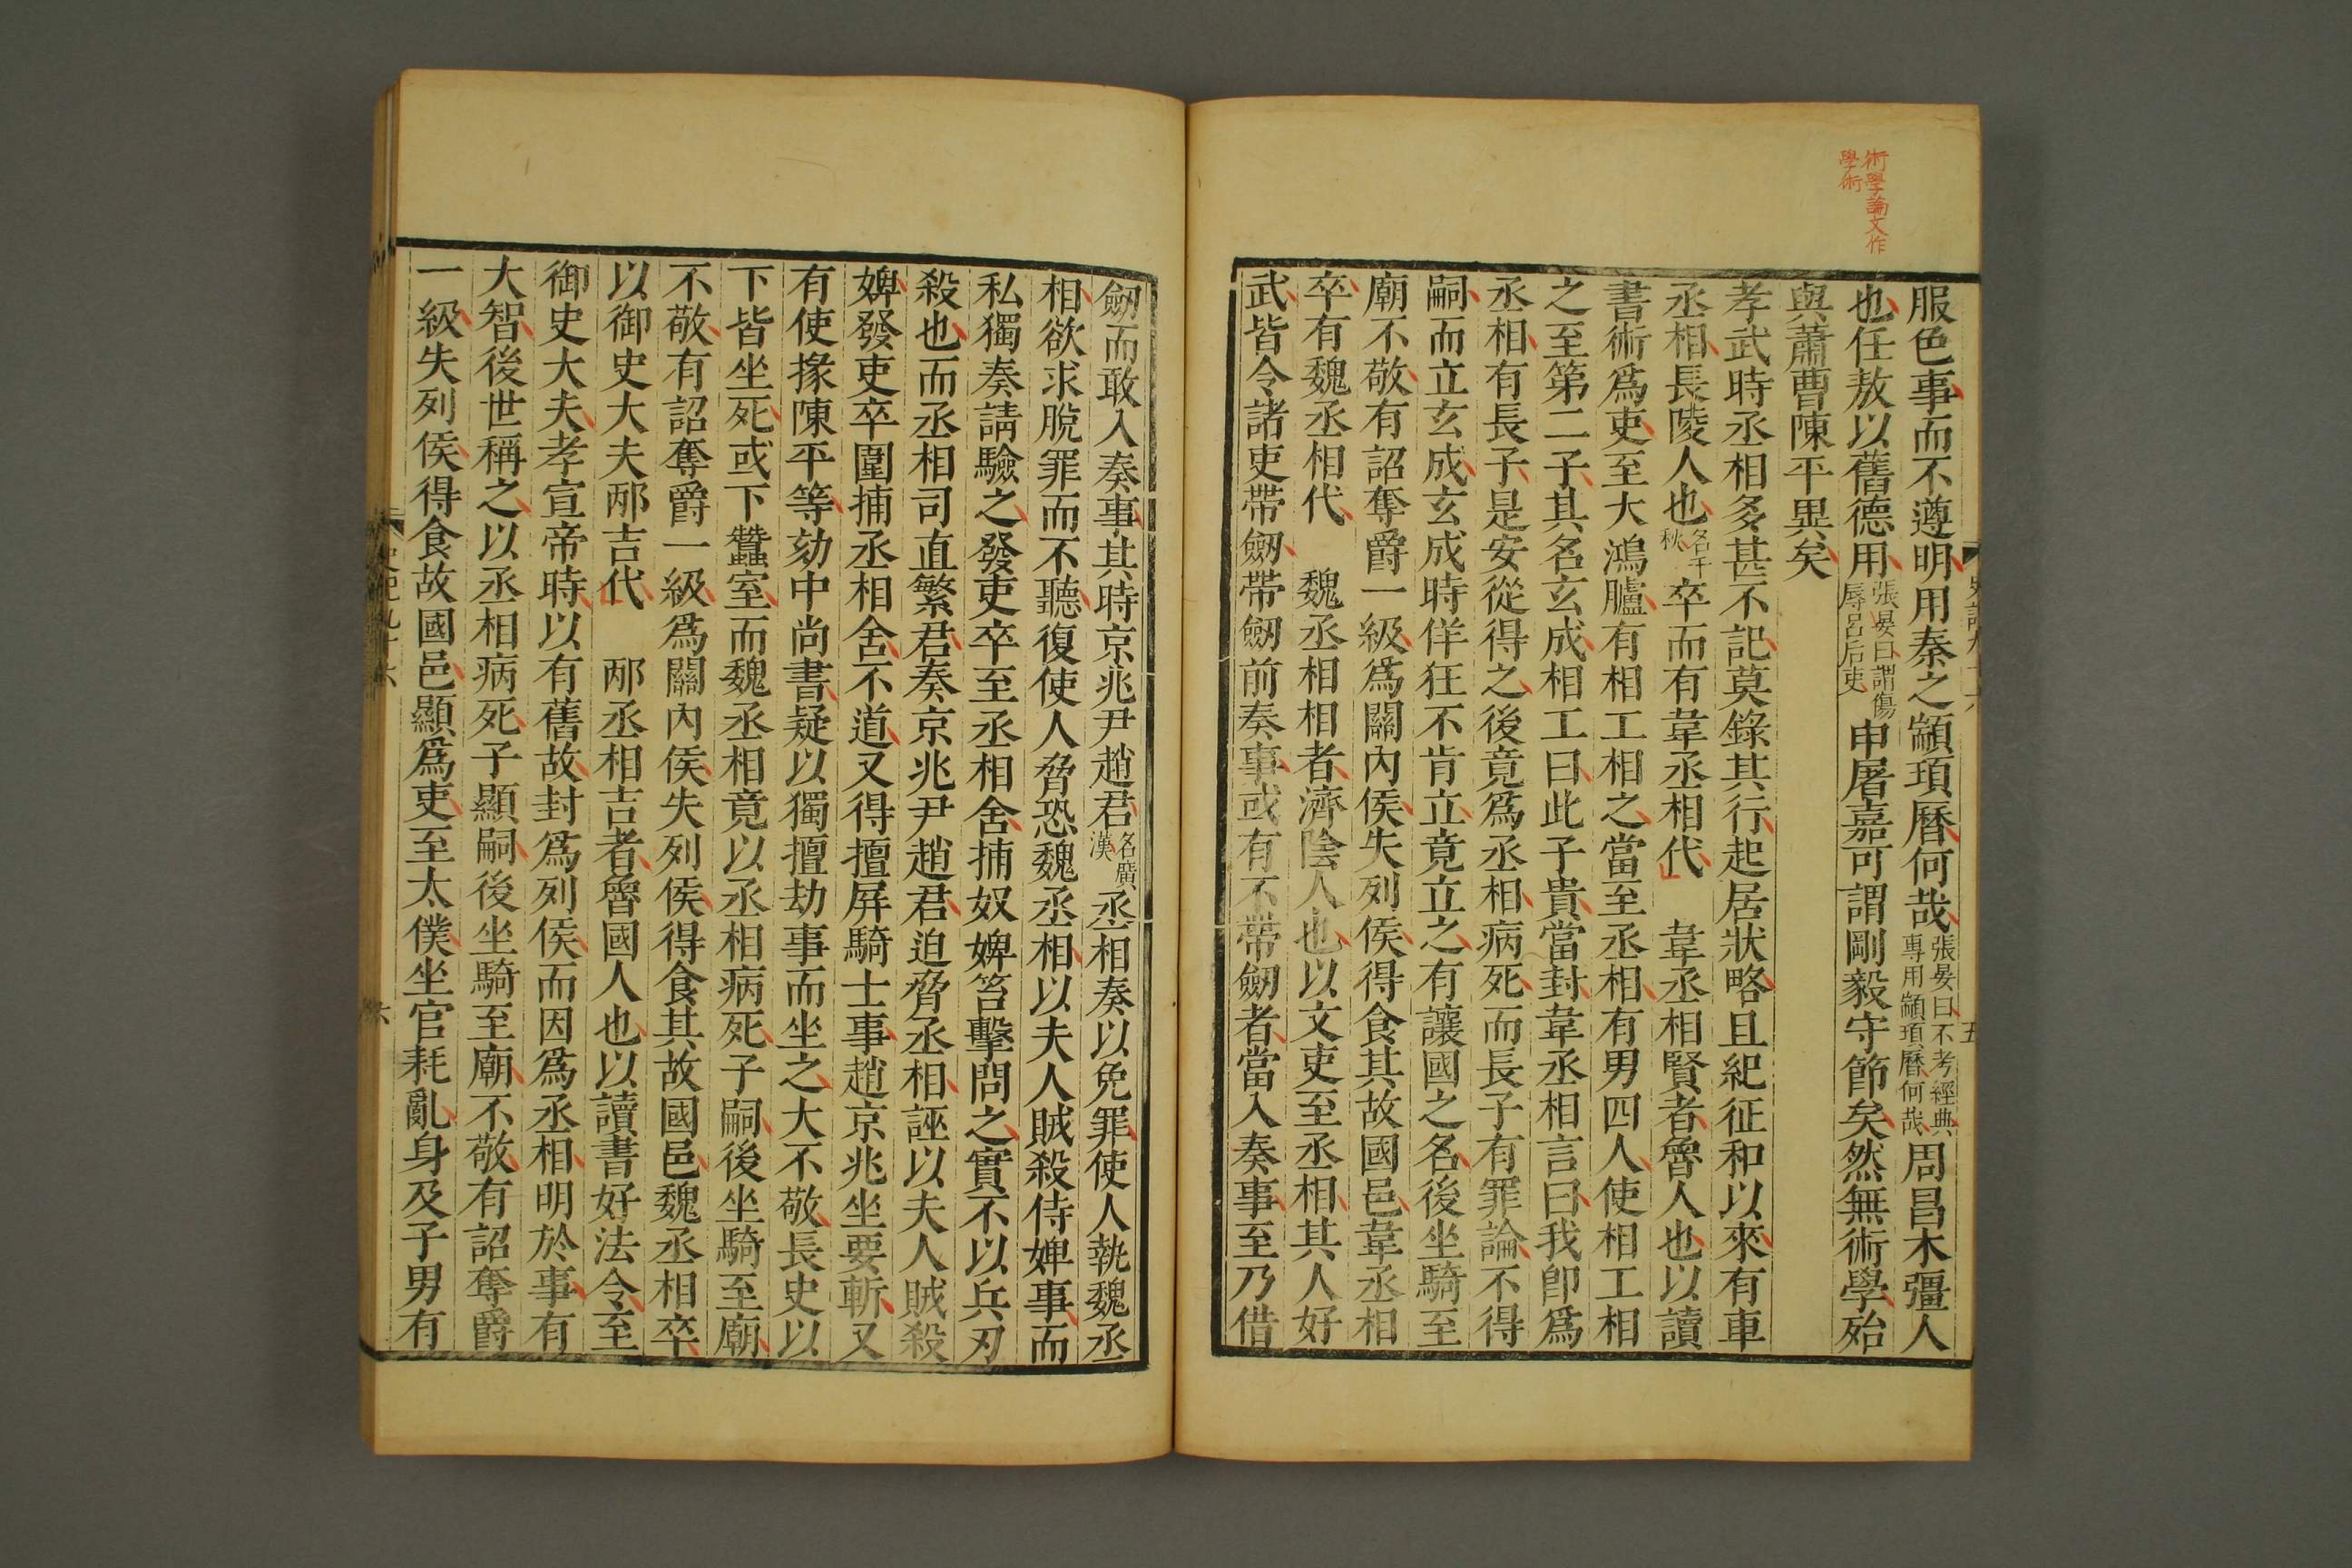 術學論文作
學術
服色事而不遵明用秦之顓頊曆何哉張晏曰不考經典專用顓頊曆何哉周昌木彊人
也任敖以舊德用張晏曰謂傷辱呂后吏申屠嘉可謂剛毅守節矣然無術學殆
與蕭曹陳平異矣
孝武時丞相多甚不記莫錄其行起居狀略且紀征和以來有車
丞相長陵人也名千秋卒而有韋丞相代　韋丞相賢者魯人也以讀
書術爲吏至大鴻臚有相工相之當至丞相有男四人使相工相
之至第二子其名玄成相工曰此子貴當封韋丞相言曰我卽爲
丞相有長子是安從得之後竟爲丞相病死而長子有罪論不得
嗣而立玄成玄成時佯狂不肯立竟立之有讓國之名後坐騎至
廟不敬有詔奪爵一級爲關內侯失列侯得食其故國邑韋丞相
卒有魏丞相代　魏丞相相者濟陰人也以文吏至丞相其人好
武皆令諸吏帶劒帶劒前奏事或有不帶劒者當入奏事至乃借
五
劒而敢入奏事其時京兆尹趙君名廣漢丞相奏以免罪使人執魏丞
相欲求脫罪而不聽復使人脅恐魏丞相以夫人賊殺侍婢事而
私獨奏請驗之發吏卒至丞相舍捕奴婢笞擊問之實不以兵刃
殺也而丞相司直繁君奏京兆尹趙君迫脅丞相誣以夫人賊殺
婢發吏卒圍捕丞相舍不道又得擅屏騎士事趙京兆坐要斬又
有使掾陳平等劾中尚書疑以獨擅劫事而坐之大不敬長史以
下皆坐死或下蠶室而魏丞相竟以丞相病死子嗣後坐騎至廟
不敬有詔奪爵一級爲關內侯失列侯得食其故國邑魏丞相卒
以御史大夫邴吉代　邴丞相吉者魯國人也以讀書好法令至
御史大夫孝宣帝時以有舊故封爲列侯而因爲丞相明於事有
大智後世稱之以丞相病死子顯嗣後坐騎至廟不敬有詔奪爵
一級失列侯得食故國邑顯爲吏至太僕坐官耗亂身及子男有
史記九十六
六